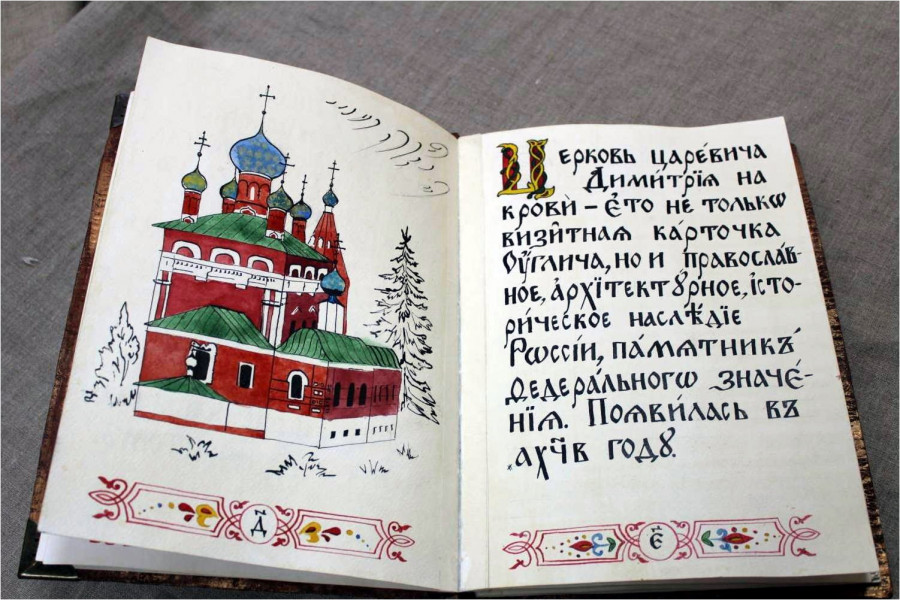 Д҃
Церковь царе́вича
Дими́трїѧ на
кровѝ – є҆́то не толькѡ
визи́тнаѧ ка́рточка
Оу҆́глича, но и правосла́в-
ное, а҆рхїтектꙋ́рное, і҆сто-
ри́ческое наслѣ́дїе
Рѡссі́и, па́мѧтникъ
федера́льногѡ значе́-
нїѧ. Поѧви́лась въ
҂ахч҃в годꙋ.
є҃